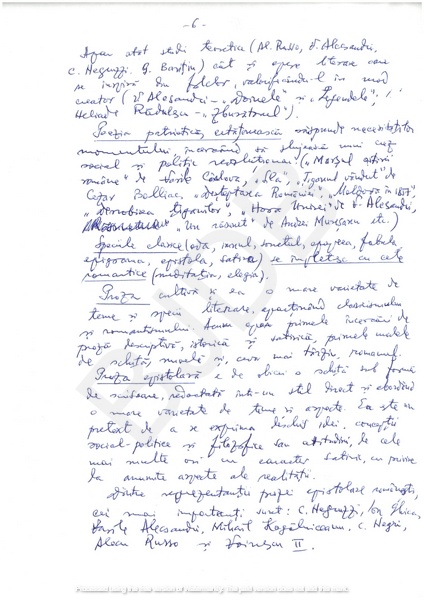 - 6 -
Apar atât studii teoretice (Al. Russo, V. Alecsandri,
C. Negruzzi, G. Barițiu) cât și opere literare care
se inspiră din folclor, valorificându-l în mod
creator (V. Alecsandri - "Doinele" și "Legendele";
Heliade Rădulescu - "Zburătorul").
Poezia patriotică, cetățenească răspunde necesităților
momentului, încercând să slujească unui crez
social și politic revoluționar: ("Marșul
române" de Vasile Cârlova, "Sla", "Țiganul vândut" de
Cezar Bolliac, "Deșteptarea României", "Moldova în 1857",
"Dezrobirea țiganilor", "Hora Unirei" de V. Alecsandri,
"Un răsunet" de Andrei Mureșanu etc.)
Speciile clasice (oda, imnul, sonetul, epopeea, fabula,
epigrama, epistola, satira) se împletesc cu cele
romantice (meditația, elegia).
Proza cultivă și ea o mare varietate de
teme și specii literare, aparținând clasicismului
și romantismului. Acum apar primele încercări de
proză descriptivă, istorică și satirică, primele
de schiță, nuvelă și, ceva mai târziu, romanul.
Proza epistolară e de obicei o schiță sub formă
de scrisoare, redactată într-un stil direct și abordând
o mare varietate de teme și aspecte. Ea este un
pretext de a se exprima deschis idei, concepții
social-politice și filozofice sau atitudini, de cele
mai multe ori cu caracter satiric, cu privire
la anumite aspecte ale realității.
Dintre reprezentanții prozei epistolare românești,
cei mai importanți sunt: C. Negruzzi, Ion Ghica,
Vasile Alecsandri, Mihail Kogălniceanu, C. Negri,
Alecu Russo și Voinescu II.